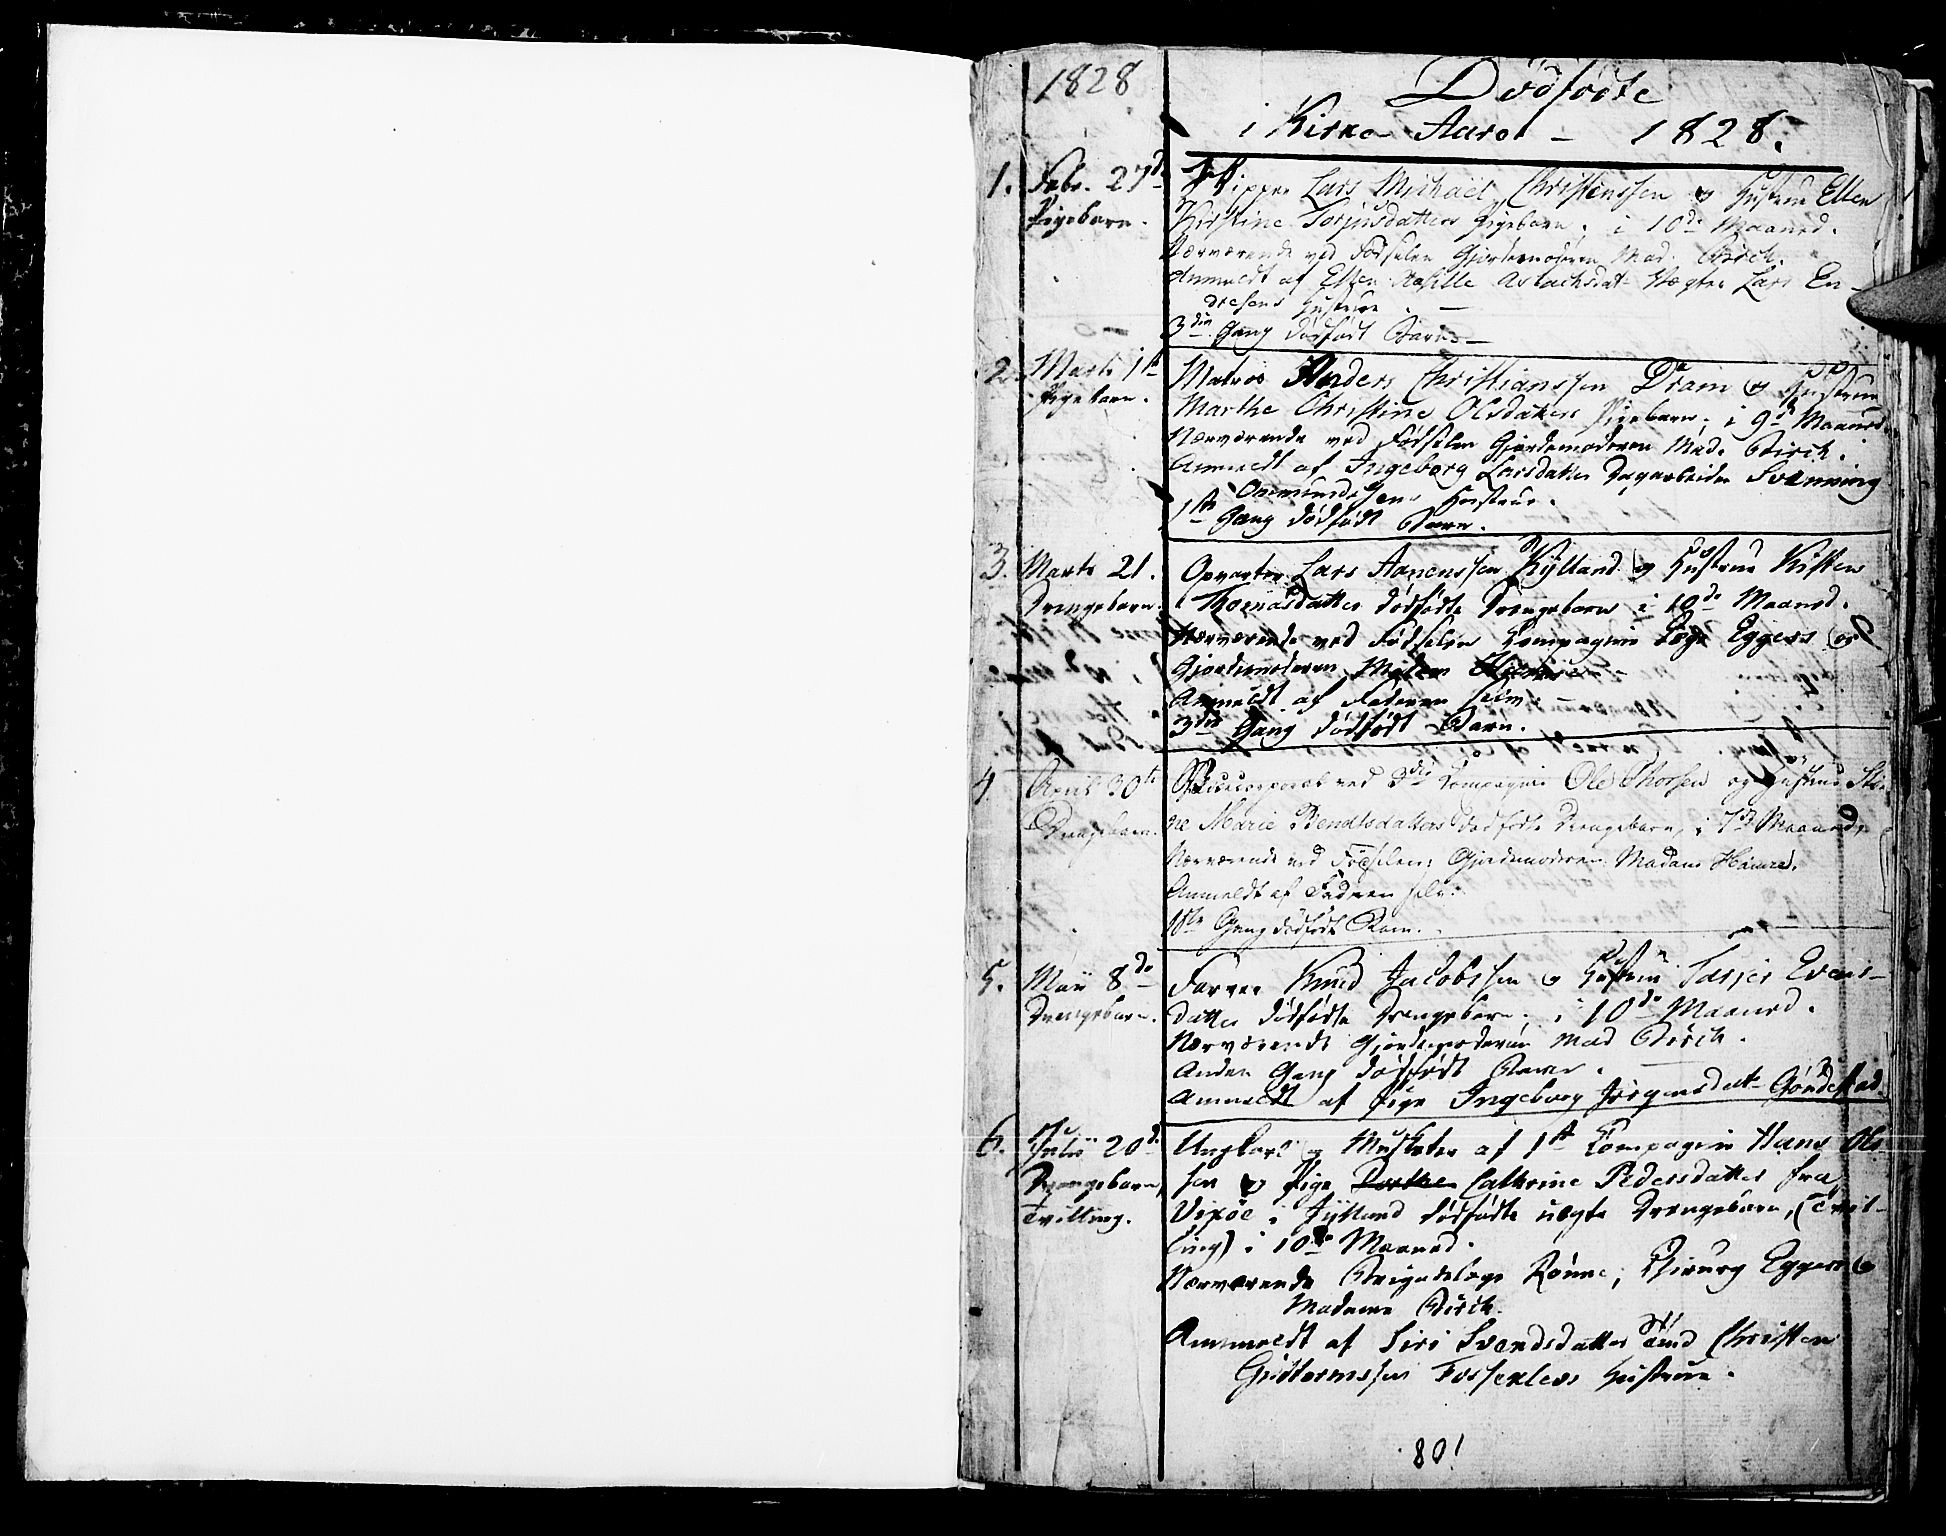 1828
Dødfødte
i Kirke-Aaret - 1828.
1. Febr. 27de
Pigebarn.
Skipper Lars Michael Christenssen og Hustrue Ellen
Kirstine Torjusdatters Pigebarn, i 10de Maaned.
Nærværende ved Fødselen Gjordemoderen Mad. Birch.
Anmeldt af Ellen Aslachsdat- Vægter Lars En-
dresens Hustrue.
3die Gang dødfødt Barn.
2. Marts 1ste
Pigebarn.
Matros Anders Christianssen Dram og Hustrue
Marthe Christine Olsdatters Pigebarn, i 9de Maaned.
Nærværende ved Fødselen Gjordemoderen Mad. Birch.
Anmeldt af Ingeborg Larsdatter Dagarbeider Svenning
Ommundsens Hustrue.
1ste Gang dødfødt Barn.
3. Marts 21.
Drengebarn.
Opvarter Lars Aanenssen Kylland og Hustrue Kisten
Thomasdatter dødfødte Drengebarn i 10de Maaned.
Nærværende ved Fødselen Kompagnie Læge Eggers og
Gjordemoderen Madam
Anmeldt af Faderen selv.
3die Gang dødfødt Barn.
4. April 30te
Drengebarn.
ved 3die Kompagnie Ole Thorsen og Hustrue Sti-
ne Marie Bendtsdatters dødfødte Drengebarn, i 7de Maaned,
Nærværende ved Fødselen: Gjordemoderen Madam Hamre.
Anmeldt af Faderen selv.
1ste Gang dødfødt Barn.
5. Maii 8de
Drengebarn.
Farver Knud Jacobssen og Hustrue Tarjer Evens-
datter dødfødte Drengebarn, i 10de Maaned.
Nærværende Gjordemoderen Mad Birch.
Anden Gang dødfødt Barn.
Anmeldt af Pige Ingeborg Jörgensdat- Gondestad.
6. Julii 20de
Drengebarn,
Tvilling.
Ungkarl og Musketer af 1ste Kompagnie Hans Ols-
sen og Pige Cathrine Pedersdatter fra
i Jylland dødfødte uægte Drengebarn, (Tvil-
ling) i 10de Maaned.
Nærværende Brigadelæge Rönne, Chirurg Eggers og
Madame Birch.
Anmeldt af Siri Svendsdatter Christen
Guttormssen Fosseklevs Hustrue.
801